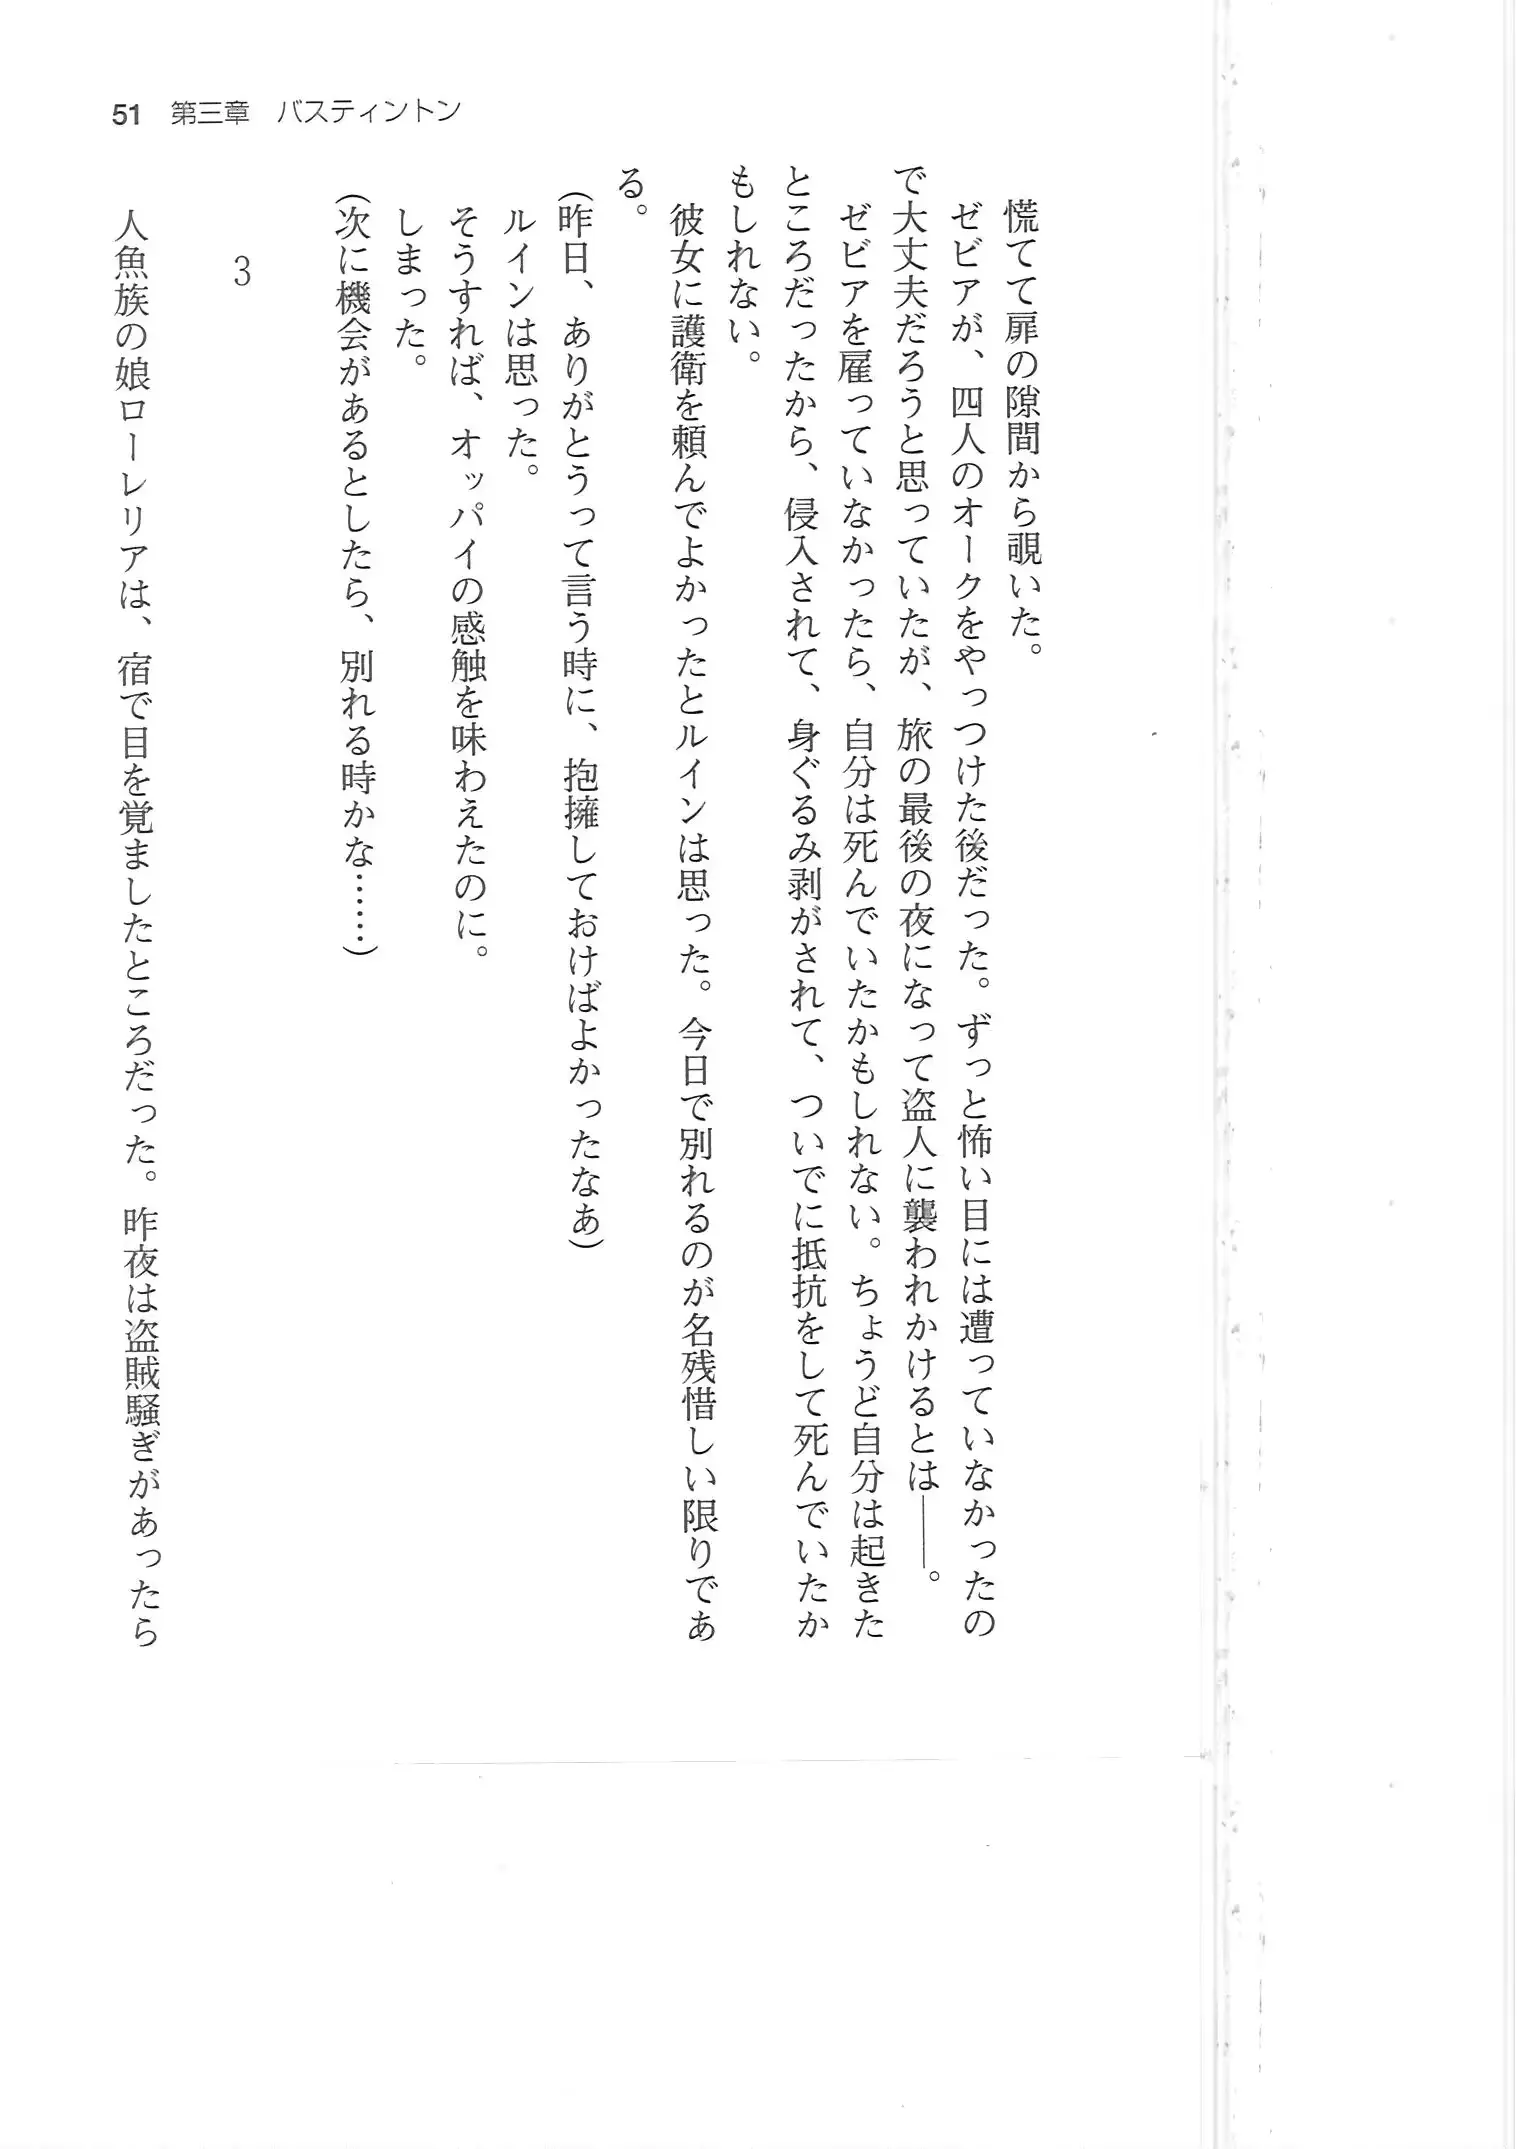 51　第三章　バスティントン
慌てて扉の隙間から覗いた。
ゼビアが、四人のオークをやっつけた後だった。ずっと怖い目には遭っていなかったの
で大丈夫だろうと思っていたが、旅の最後の夜になって盗人に襲われかけるとは――。
ゼビアを雇っていなかったら、自分は死んでいたかもしれない。ちょうど自分は起きた
ところだったから、侵入されて、身ぐるみ剥がされて、ついでに抵抗をして死んでいたか
もしれない。
彼女に護衛を頼んでよかったとルインは思った。今日で別れるのが名残惜しい限りであ
る。
（昨日、ありがとうって言う時に、抱擁しておけばよかったなあ）
ルインは思った。
そうすれば、オッパイの感触を味わえたのに。
しまった。
（次に機会があるとしたら、別れる時かな……）
3
人魚族の娘ローレリアは、宿で目を覚ましたところだった。昨夜は盗賊騒ぎがあったら